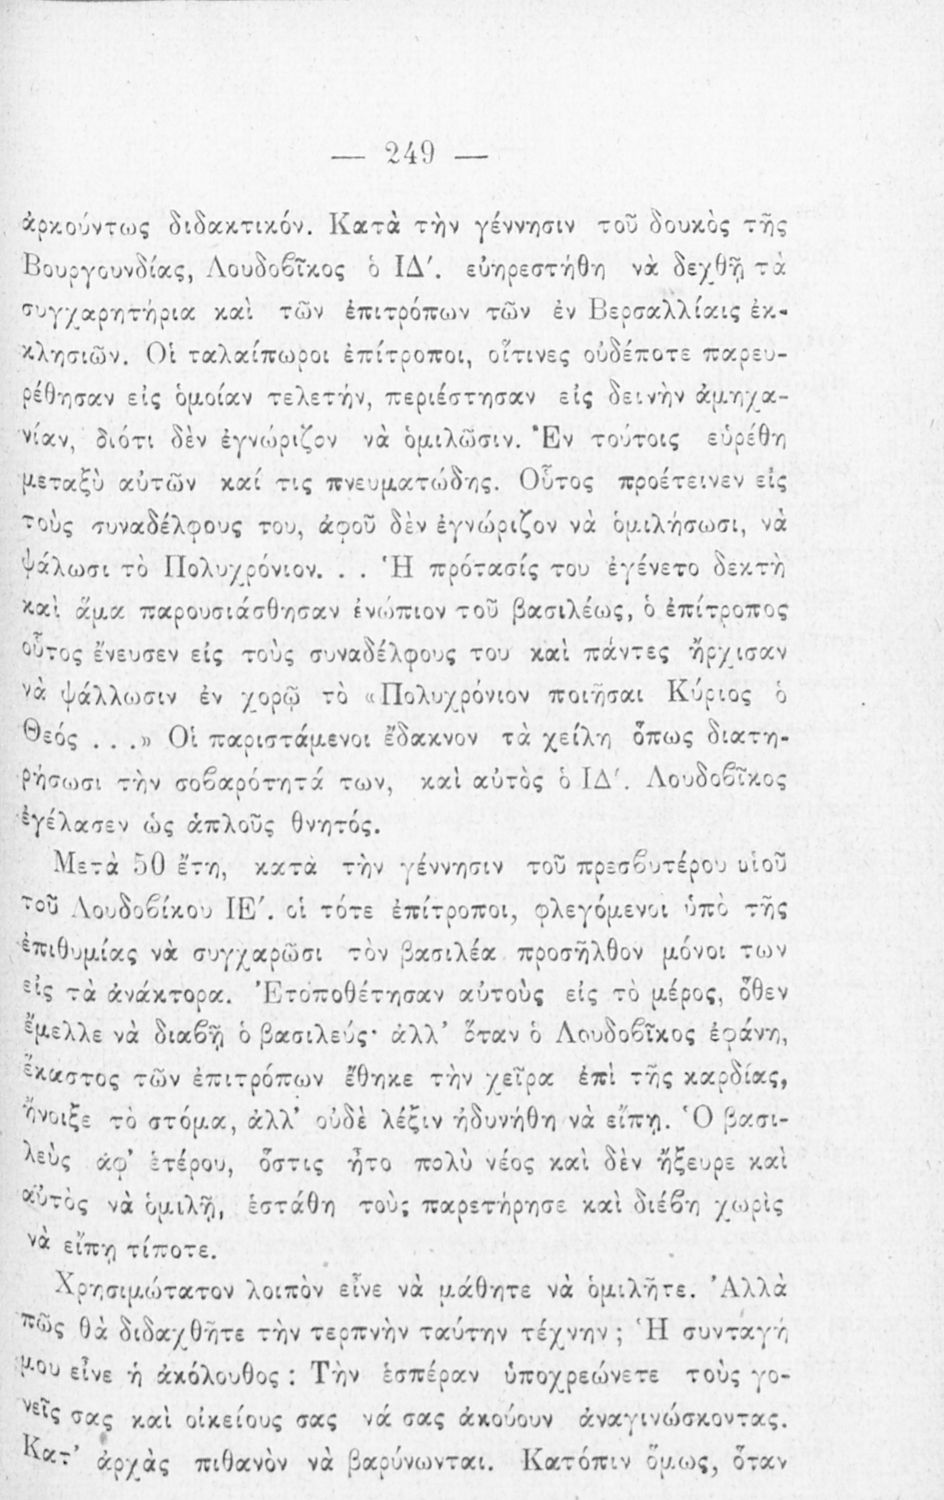 — 249 —
ἀρκούντως διδακτικόν. Κατὰ τὴν γέννησιν τοῦ δουκὸς τῆς
Βουργουνδίας, Λουδοβῖκος ὁ ΙΔ΄. εὐηρεστήθη νὰ δεχθῇ τὰ
συγχαρητήρια καὶ τῶν ἐπιτρόπων τῶν ἐν Βερσαλλίαις ἐκ-
κλησιῶν. Οἱ ταλαίπωροι ἐπίτροποι, οἵτινες οὐδέποτε παρευ-
ρέθησαν εἰς ὁμοίαν τελετήν, περιέστησαν εἰς δεινὴν ἀμηχα-
νίαν, διότι δὲν ἐγνώριζον νὰ ὁμιλῶσιν. Ἐν τούτοις εὑρέθη
μεταξὺ αὐτῶν καί τις πνευματώδης. Οὗτος προέτεινεν εἰς
τοὺς συναδέλφους του, ἀφοῦ δὲν ἐγνώριζον νὰ ὁμιλήσωσι, νὰ
ψάλωσι τὸ Πολυχρόνιον. . . Ἡ πρότασίς του ἐγένετο δεκτὴ
καὶ ἅμα παρουσιάσθησαν ἐνώπιον τοῦ βασιλέως, ὁ ἐπίτροπος
οὗτος ἔνευσεν εἰς τοὺς συναδέλφους του καὶ πάντες ἤρχισαν
νὰ ψάλλωσιν ἐν χορῷ τὸ «Πολυχρόνιον ποιῆσαι Κύριος ὁ
Θεός . . .» Οἱ παριστάμενοι ἔδακνον τὰ χείλη ὅπως διατη-
ρήσωσι τὴν σοβαρότητά των, καὶ αὐτὸς ὁ ΙΔ΄. Λουδοβῖκος
ἐγέλασεν ὡς ἁπλοῦς θνητός.
Μετὰ 50 ἔτη, κατὰ τὴν γέννησιν τοῦ πρεσβυτέρου υἱοῦ
τοῦ Λουδοβίκου ΙΕ΄. οἱ τότε ἐπίτροποι, φλεγόμενοι ὑπὸ τῆς
ἐπιθυμίας νὰ συγχαρῶσι τὸν βασιλέα προσῆλθον μόνοι των
εἰς τὰ ἀνάκτορα. Ἐτοποθέτησαν αὐτοὺς εἰς τὸ μέρος, ὅθεν
ἔμελλε νὰ διαβῇ ὁ βασιλεύς· ἀλλ’ ὅταν ὁ Λουδοβῖκος ἐφάνη,
ἕκαστος τῶν ἐπιτρόπων ἔθηκε τὴν χεῖρα ἐπὶ τῆς καρδίας,
ἤνοιξε τὸ στόμα, ἀλλ’ οὐδὲ λέξιν ἠδυνήθη νὰ εἴπῃ. Ὁ βασι-
λεὺς ἀφ’ ἑτέρου, ὅστις ἦτο πολὺ νέος καὶ δὲν ἤξευρε καὶ
αὐτὸς νὰ ὁμιλῇ, ἐστάθη τοὺς παρετήρησε καὶ διέβη χωρὶς
νὰ εἴπῃ τίποτε.
Χρησιμώτατον λοιπὸν εἶνε νὰ μάθητε νὰ ὁμιλῆτε. Ἀλλὰ
πῶς θὰ διδαχθῆτε τὴν τερπνὴν ταύτην τέχνην ; Ἡ συνταγή
μου εἶνε ἡ ἀκόλουθος : Τὴν ἑσπέραν ὑποχρεώνετε τοὺς γο-
νεῖς σας καὶ οἰκείους σας νά σας ἀκούουν ἀναγινώσκοντας.
Κατ’ ἀρχὰς πιθανὸν νὰ βαρύνωνται. Κατόπιν ὅμως, ὅταν